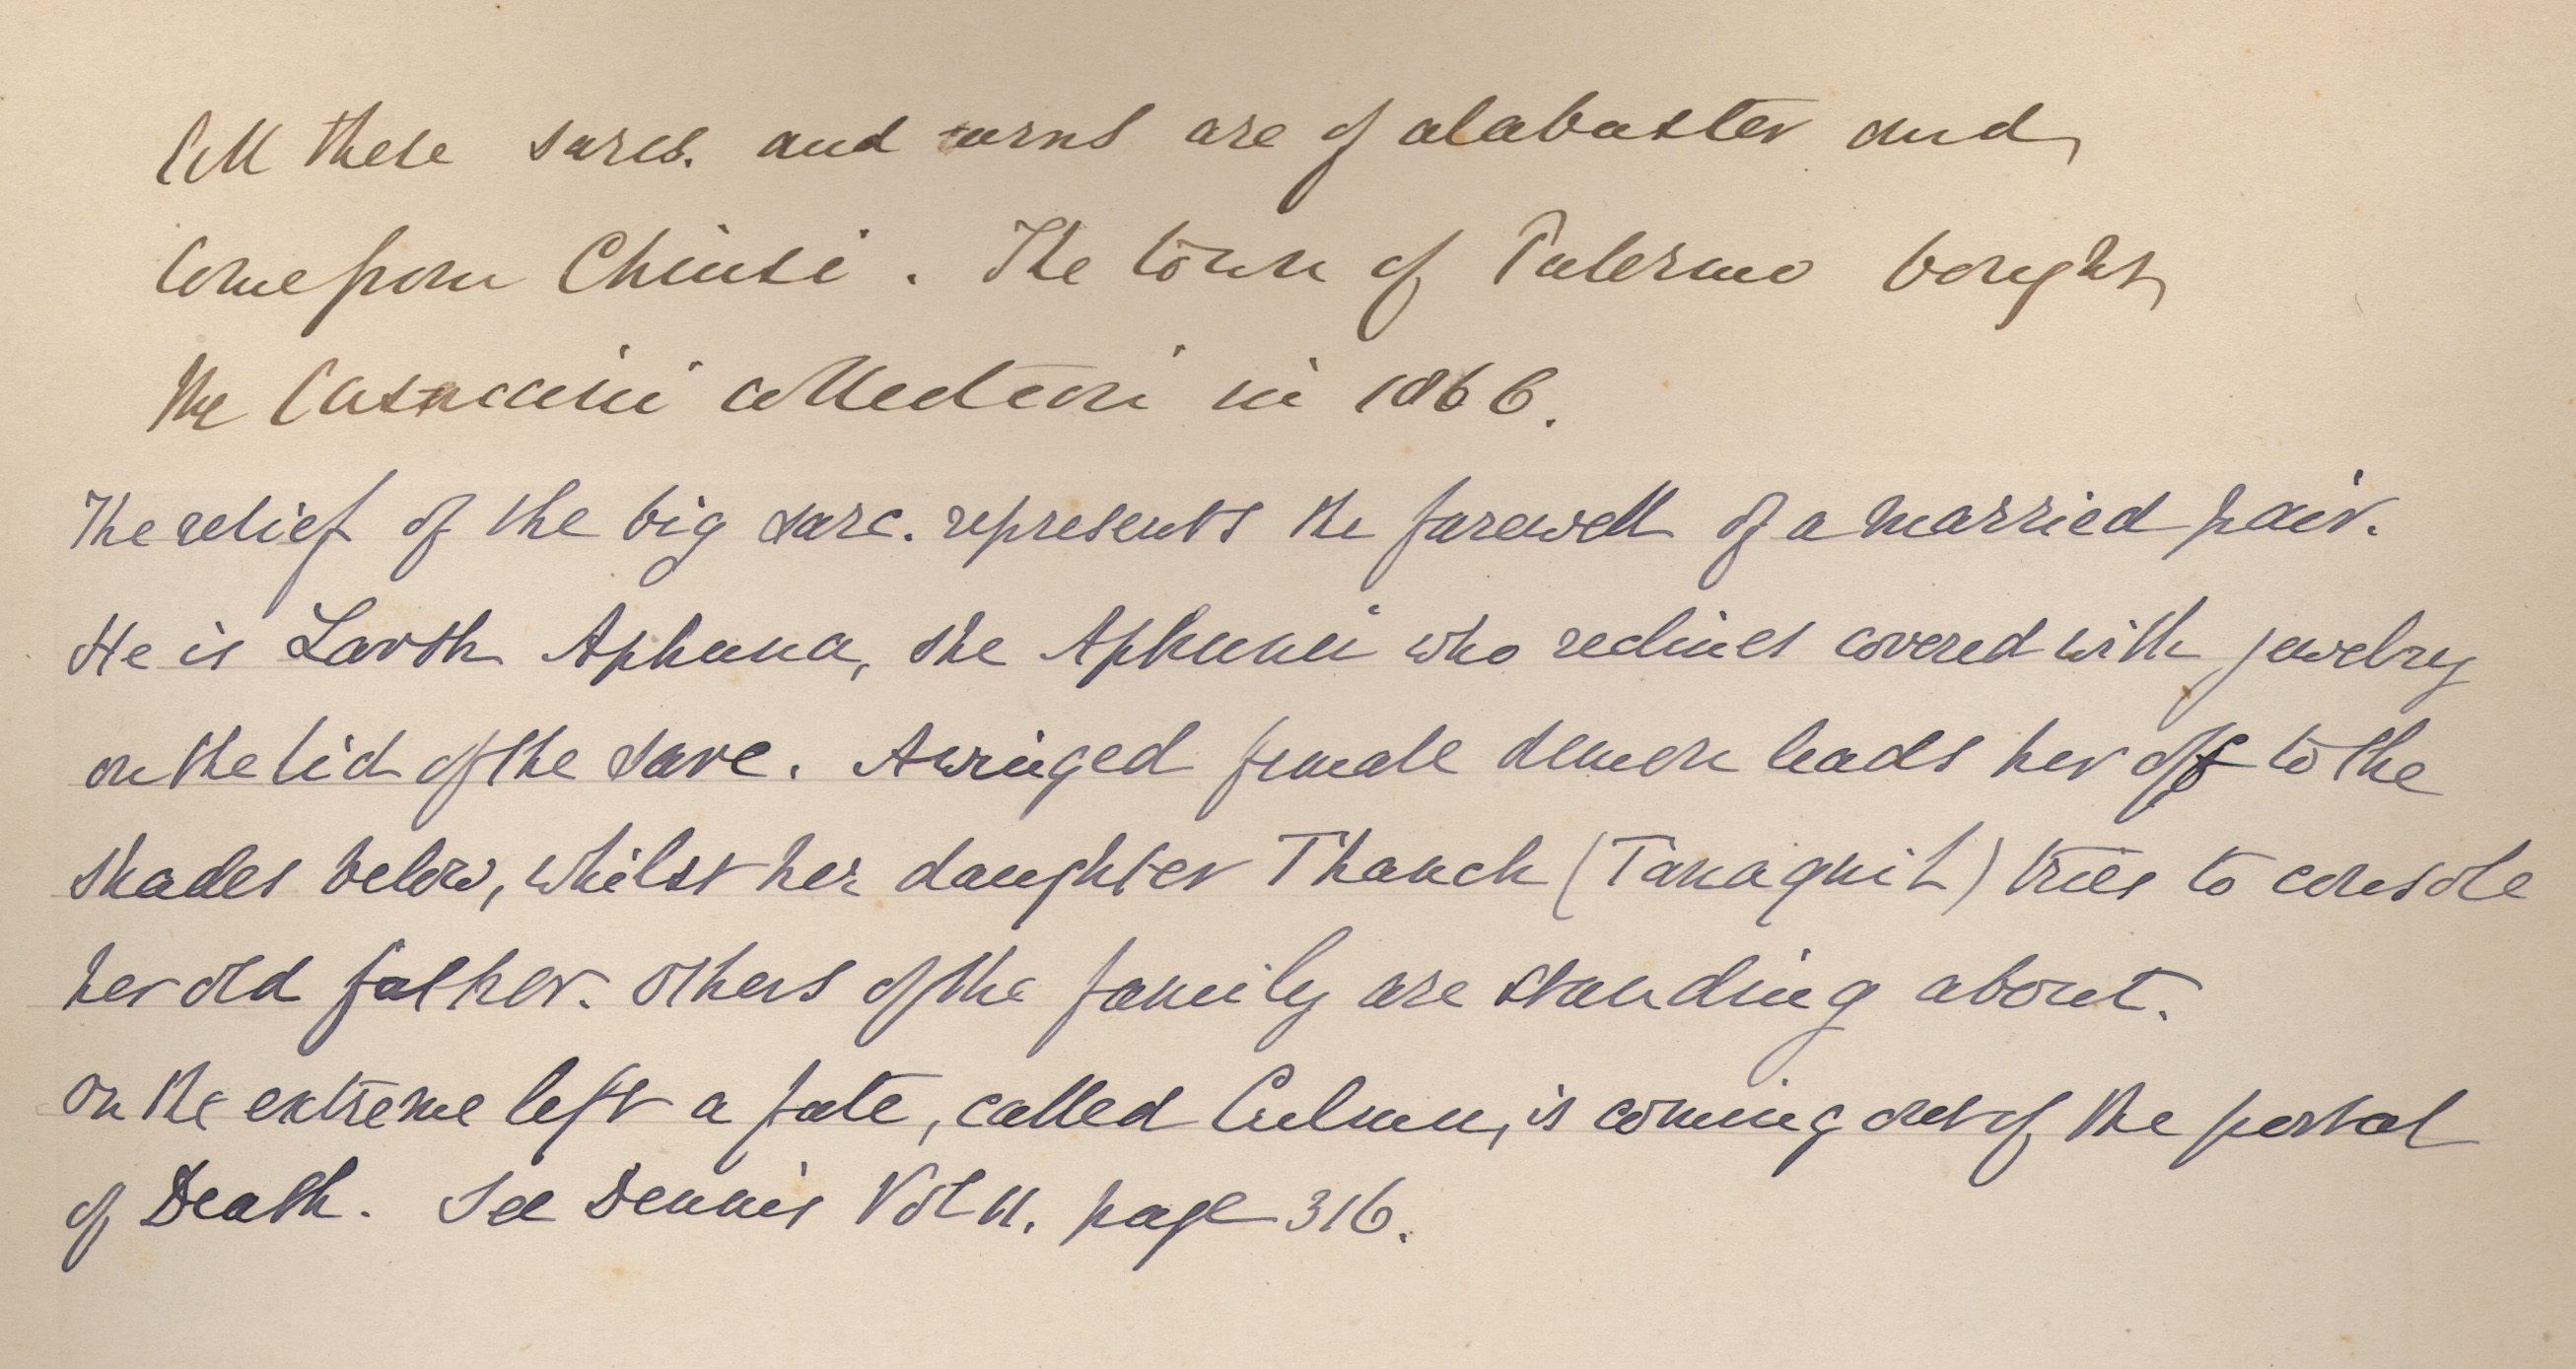 All these sarcs. and urns are of alabaster and
come from Chiusi. The town of Palermo bought
the Casuccini collection in 1866.
The relief of the big sarc. represents the farewell of a married pair.
He is Larth Aphuna, she Aphunei who reclines covered with jewelry
on the lid of the sarc. A winged female demon leads her off to the
shades below, whilst her daughter Thanch (Tanaquil) tries to console
her old father. Others of the family are standing about.
On the extreme left a fate, called Culmu, is coming out of the portal
of Death. See Dennis Vol II. page 316.